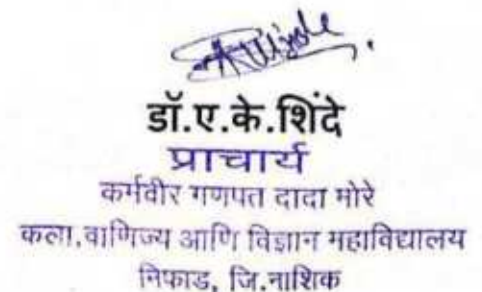 डॉ.ए.के.शिंदे
प्राचार्य
कर्मवीर गणपत दादा मोरे
कला,वाणिज्य आणि विज्ञान महाविद्यालय
निफाड, जि.नाशिक